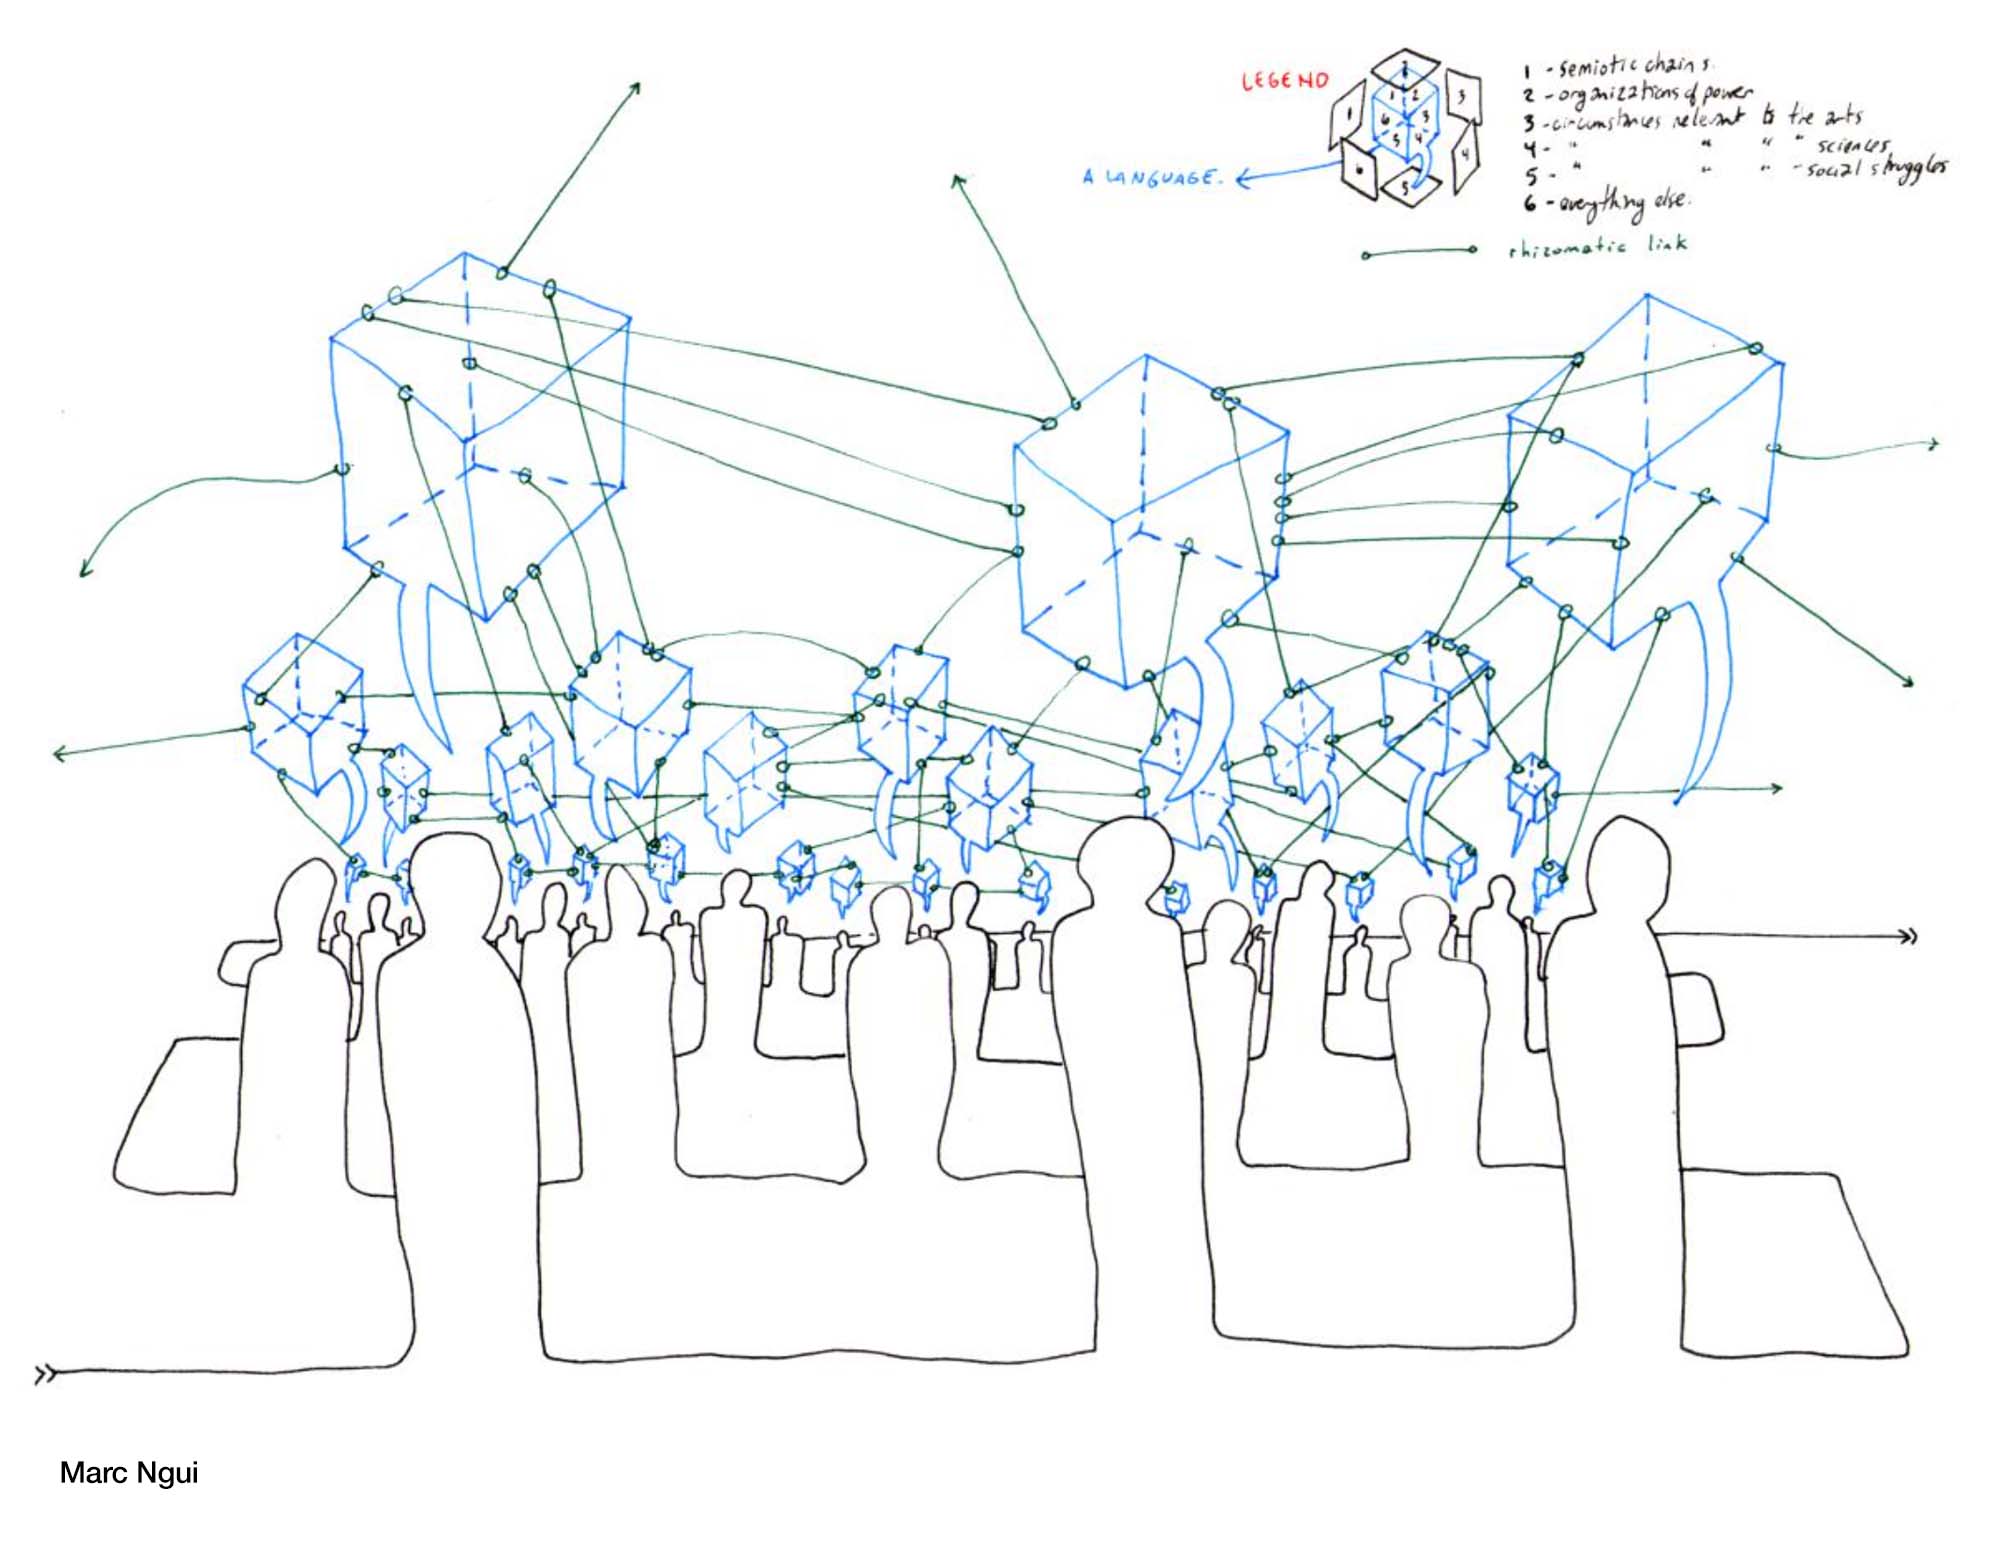 LEGEND
1 - semiotic chains.
2 - organizations of power
3 - circumstances relevant to the arts
4 - " " " " sciences
5 - " " " - social struggles
6 - everything else.
A LANGUAGE.
1 2 3 4 5 6
1
3
6
4
5
rhizomatic link
Marc Ngui